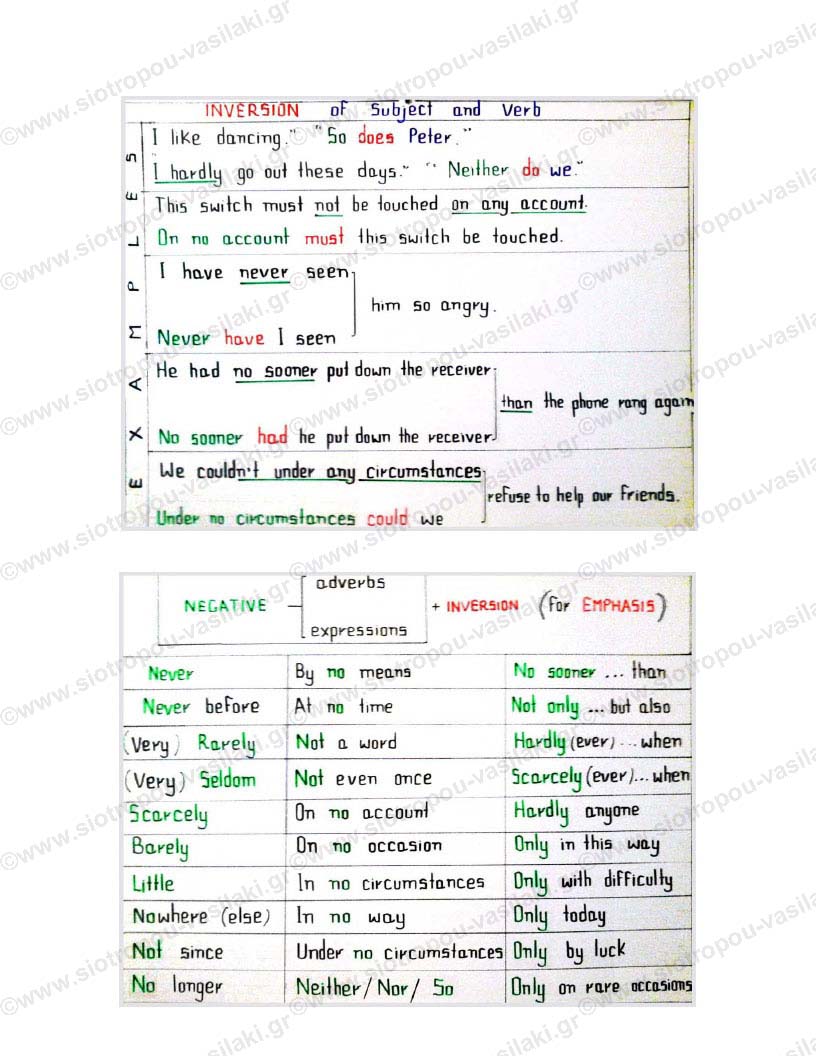 INVERSION of Subject and Verb
EXAMPLES
I like dancing." "So does Peter."
"I hardly go out these days." "Neither do we."
This switch must not be touched on any account.
On no account must this switch be touched.
I have never seen
him so angry.
Never have I seen
He had no sooner put down the receiver
than the phone rang again
No sooner had he put down the receiver
We couldn't under any circumstances
refuse to help our friends.
Under no circumstances could we
NEGATIVE adverbs expressions + INVERSION (For EMPHASIS)
Never By no means No sooner ... than
Never before At no time Not only ... but also
(Very) Rarely Not a word Hardly (ever) ... when
(Very) Seldom Not even once Scarcely (ever) ... when
Scarcely On no account Hardly anyone
Barely On no occasion Only in this way
Little In no circumstances Only with difficulty
Nowhere (else) In no way Only today
Not since Under no circumstances Only by luck
No longer Neither / Nor / So Only on rare occasions
©www.siotropou-vasilaki.gr